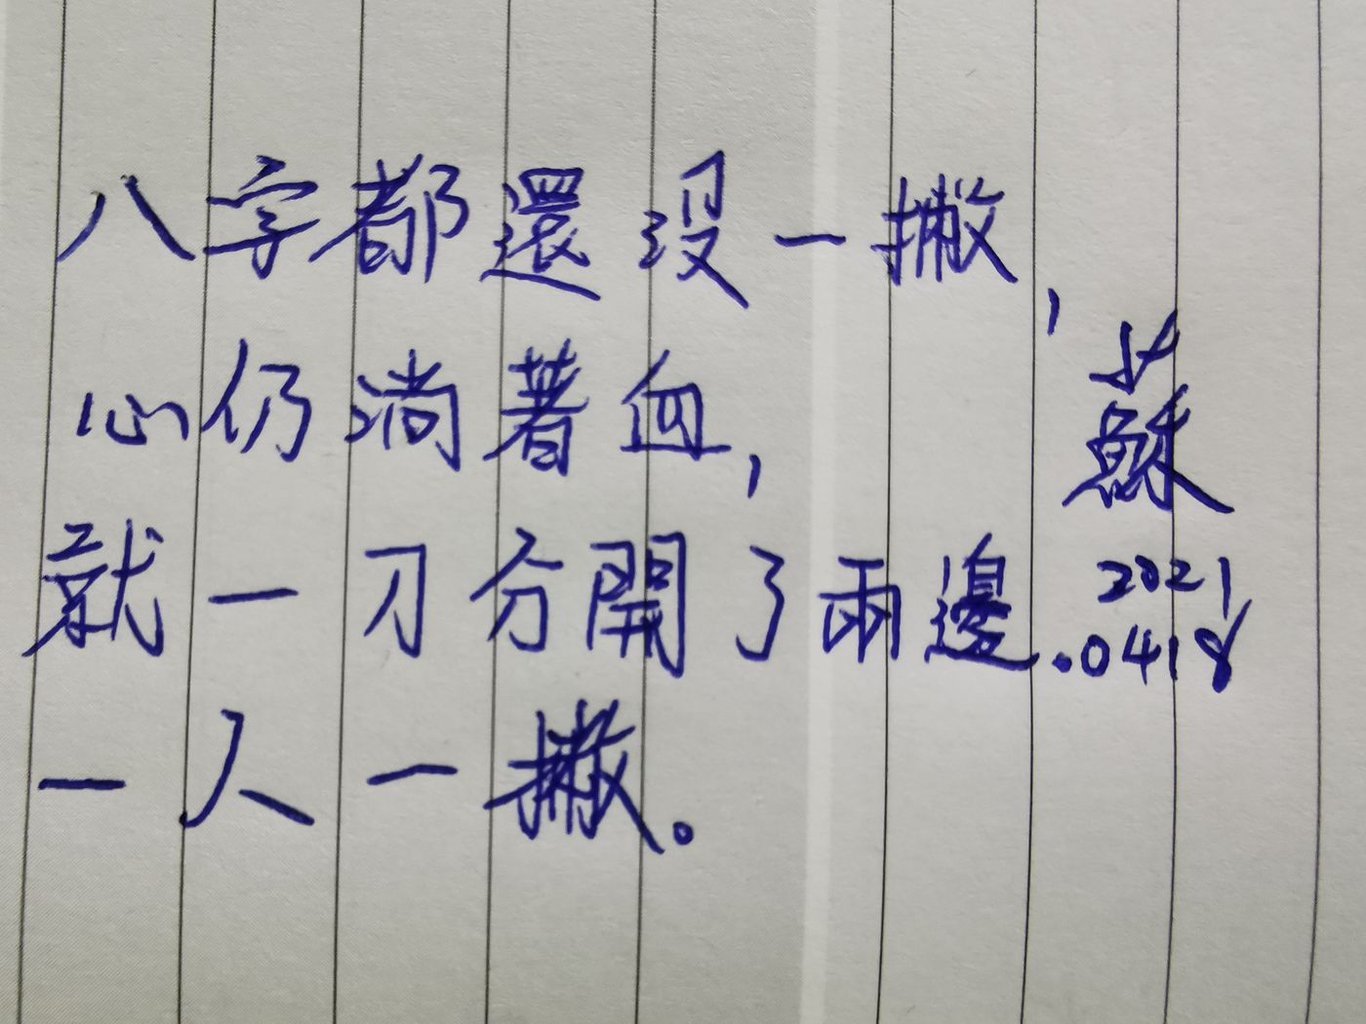 八字都還沒一撇,
心仍淌著血,
就一刀分開了兩邊.
一人一撇。
蘇
2021
0418